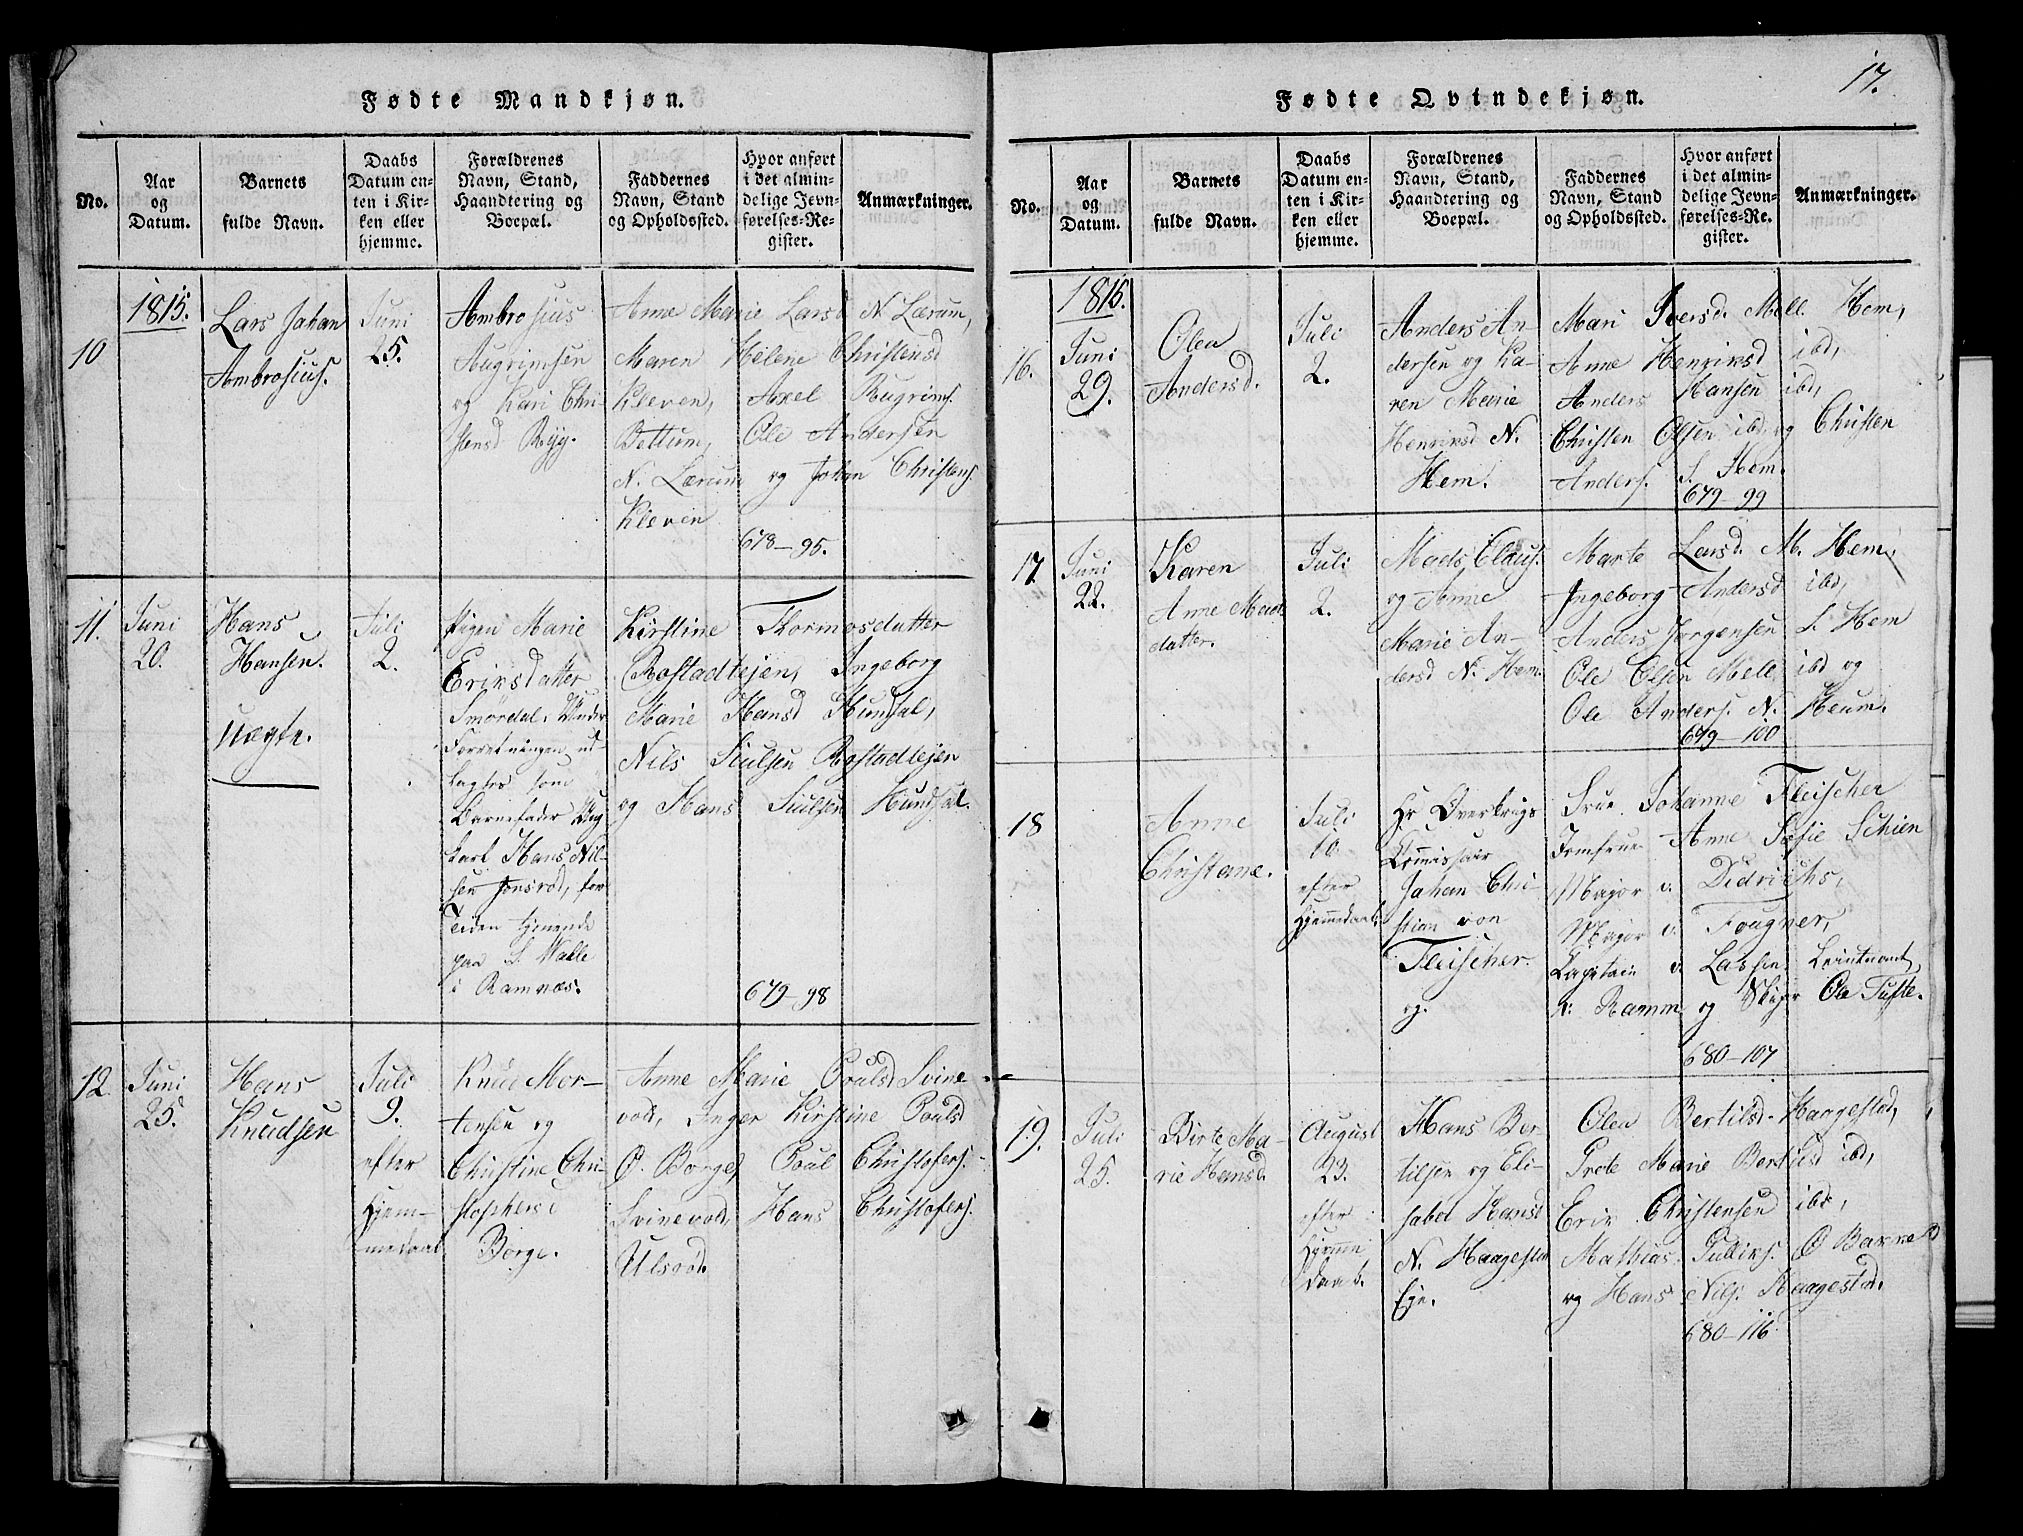 Fødte Mandkjøn.
No.
Aar
og
Datum.
Barnets
fulde Navn.
Daabs
Datum en-
ten i Kir-
ken eller
hjemme.
Forældrenes
Navn, Stand,
Haandtering og
Boepæl.
Faddernes
Navn, Stand
og Opholdssted.
Hvor anført
i det almin-
delige Jevn-
førelses-Re-
gister.
Anmærkninger.
10
1815.
Lars Johan
Ambrosius.
Juni
25.
Ambrosius
Augrimsen
og Kari Chri-
stensd Ryg.
Anne Marie Larsd N. Lærum,
Maren Helene Christensd
Kleven, Axel Augrims.
Bettum, Ole Andersen
N. Lærum og Johan Christens.
Kleven
678-95.
11.
Juni
20.
Hans
Hansen.
uægte.
Juli
2.
Pigen Marie
Eriksdatter
Smørdal. Under
Forretningen ud-
lagtes som
Barnefader Ung-
karl Hans Nil-
sen Jonsrød, for
Tiden tjenende
paa S. Valle
i Ramnæs.
Kirstine Thormosdatter
Rostadlejen, Ingeborg
Marie Hansd Hundsal,
Nils Siulsen Rostadlejen
og Hans Siulsen Hundsal.
679-98
12.
Juni
25.
Hans
Knudsen
Juli
9.
efter
Hjem-
medaab
Knud Mor-
tensen og
Christine Chri-
stophersd
Borge.
Anne Marie Poulsd Svine
vold, Inger Kirstine Poulsd
Ø. Borge, Poul Christofers.
Svinevold, Hans Christofers.
Ulsrød.
17.
Fødte Qvindekjøn.
No.
Aar
og
Datum.
Barnets
fulde Navn.
Daabs
Datum en-
ten i Kir-
ken eller
hjemme.
Forældrenes
Navn, Stand,
Haandtering og
Boepæl.
Faddernes
Navn, Stand
og Opholdssted.
Hvor anført
i det almin-
delige Jevn-
førelses-Re-
gister.
Anmærkninger.
16.
1815.
Juni
29.
Olea
Andersd.
Juli
2.
Anders An-
dersen og Ka-
ren Marie
Henriksd N.
Hem.
Mari Iversd. Mell. Hem,
Anne Henriksd ibd,
Anders Hansen ibd,
Christen Olsen ibd, og Christen
Anders. S. Hem.
679-99
17.
Juni
22.
Karen
Anne Mads
datter.
Juli
2.
Mads Claus.
og Anne
Marie An-
dersd N. Hem.
Marte Larsd. M. Hem,
Ingeborg Andersd ibd,
Anders Jørgensen S. Hem
Ole Olsen Mell. ibd og
Ole Anders. N. Heum.
679-100
18
Anne
Christane.
Juli
10.
efter
Hjemmedaab.
Hr Overkrigs
Commissair
Johan Chri-
stian von
Fleischer.
og.
Frue Johanne Fleischer
Jomfrue Anne Sofie Schien
Major v. Didrichs,
Major v. Fougner,
Capitain v. Lassen, Leintnant
v: Ramm og Skyfr Ole Tufte.
680-107
19.
Juli
25.
Birte Ma-
rie Hansd.
August
23.
efter
Hjemme
daab.
Hans Ber-
tilsen og Eli-
sabet Hansd
N. Haagestad
Eje.
Olea Bertilsd. Haagestad,
Grete Marie Bertilsd ibd,
Erik Christensen ibd,
Mathias Gulliks. Ø Bakke
og Hans Nils. Haagestad.
680-116.